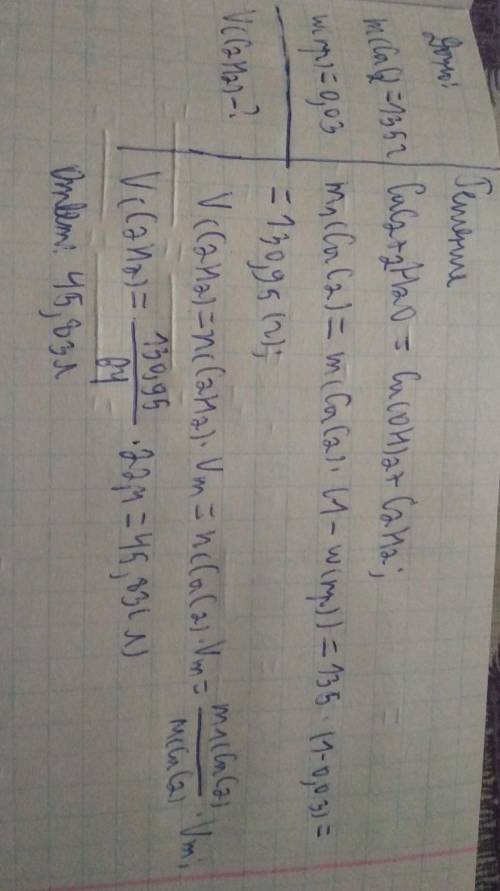 Дано:
m(CaC2)=135г
w(пр)=0,03
V(C2H2)-?
Решение
CaC2+2H2O = Ca(OH)2+C2H2;
m1(CaC2)= m(CaC2)· (1-w(пр))=135· (1-0,03)=
=130,95 (г);
V(C2H2)=n(C2H2)·Vm=n(CaC2)·Vm= m1(CaC2)/M(CaC2) ·Vm;
V(C2H2)= 130,95/64 ·22,4=45,83(л)
Ответ: 45,83л